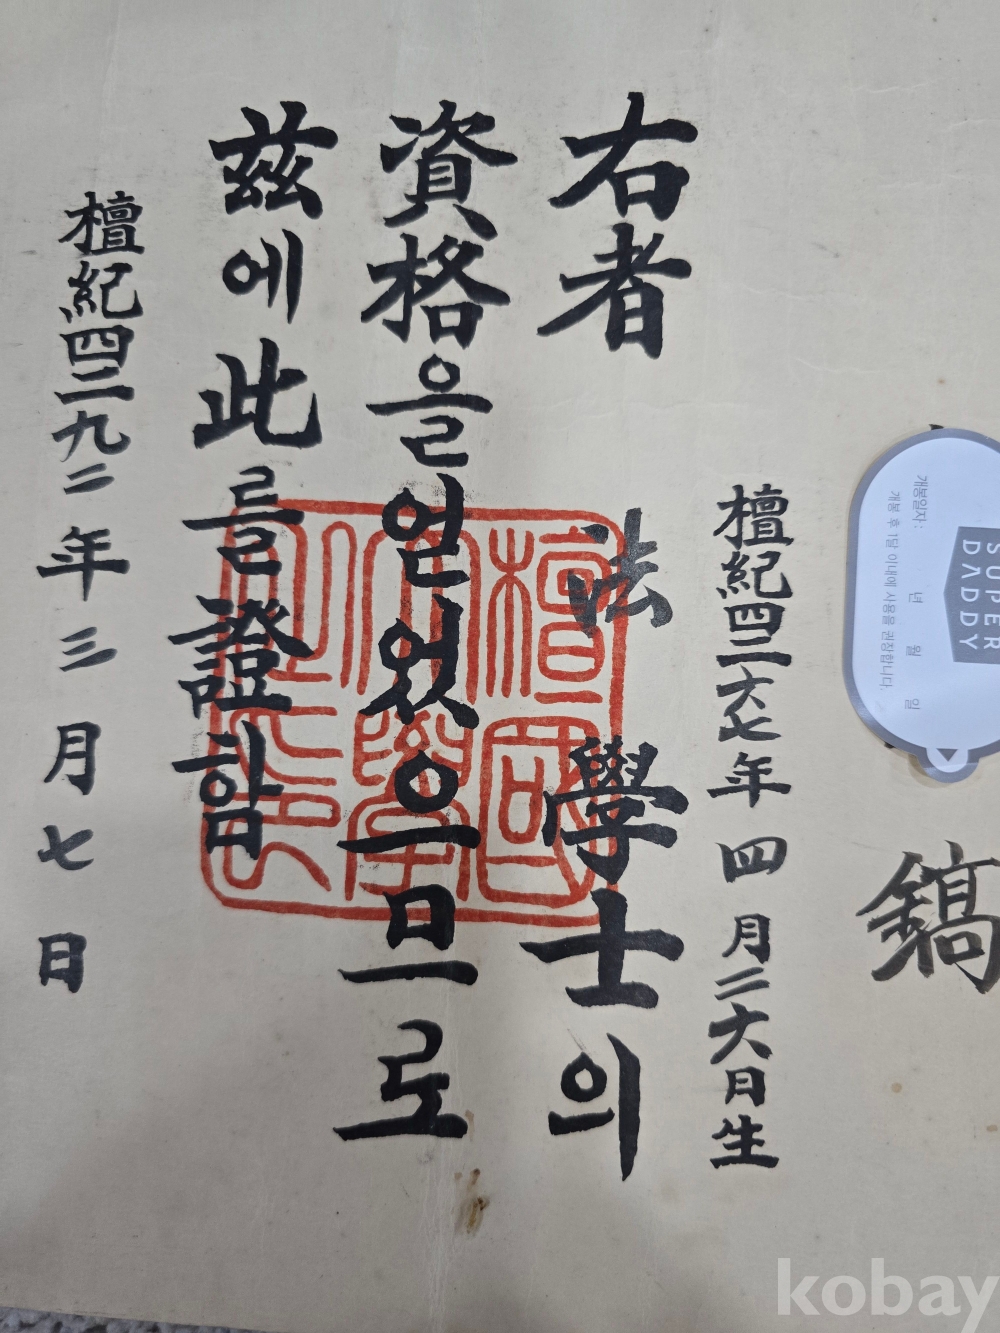 鎬
SUPER
DADDY
개봉일자: 년 월 일
개봉 후 1달 이내에 사용을 권장합니다.
檀紀四二六七年四月二六日生
右者 法學士의
資格을얻었으므로
玆에此를證함
檀紀四二九二年三月七日
檀國
大學
之印
kobay